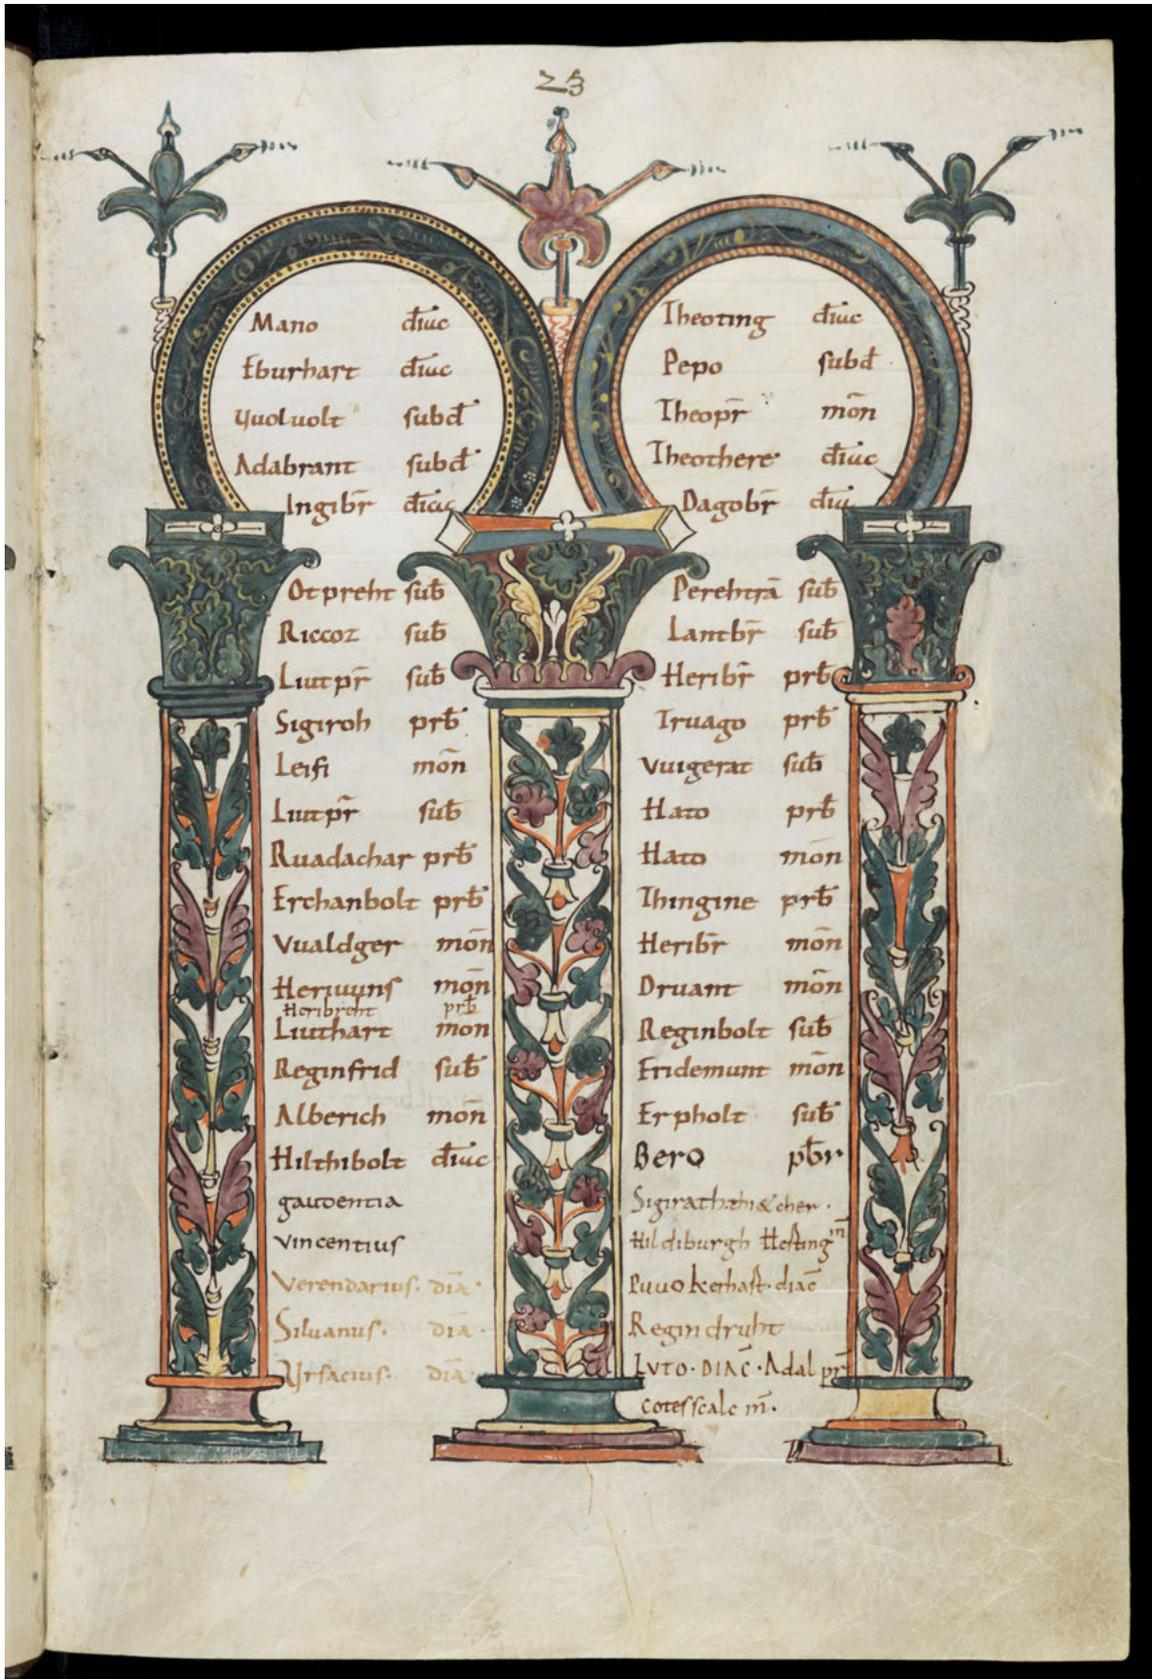 23
Mano diac
Eburhart diac
Vuoluolt subd
Adabrant subd
Ingibr̄ diac
Otpreht sub̄
Riccoz sub̄
Liutpr̄ sub̄
Sigiroh prb̄
Leifi mōn
Liutpr̄ sub̄
Ruadachar prb̄
Erchanbolt prb̄
Vualdger mōn
Heriuuns mōn
Heribreht prb̄
Liuthart mōn
Reginfrid sub̄
Alberich mōn
Hilthibolt diac
gaudentia
vincentius
Verendarius. diā.
Siluanus. diā.
Vrsacius. diā.
Theoting diac
Pepo subd
Theopr̄ mōn
Theothere diac
Dagobr̄ diac
Perehtrā sub̄
Lantbr̄ sub̄
Heribr̄ prb̄
Truago prb̄
Vuigerat sub̄
Hato prb̄
Hato mōn
Thingine prb̄
Heribr̄ mōn
Druant mōn
Reginbolt sub̄
Fridemunt mōn
Erpholt sub̄
Bero pb̄r
Sigirath
Hildiburgh Hesting m̄
Puuo kerhast. diac̄
Regindruht
LVTO. DIAC̄. Adal pr̄
cotesscalc m̄.